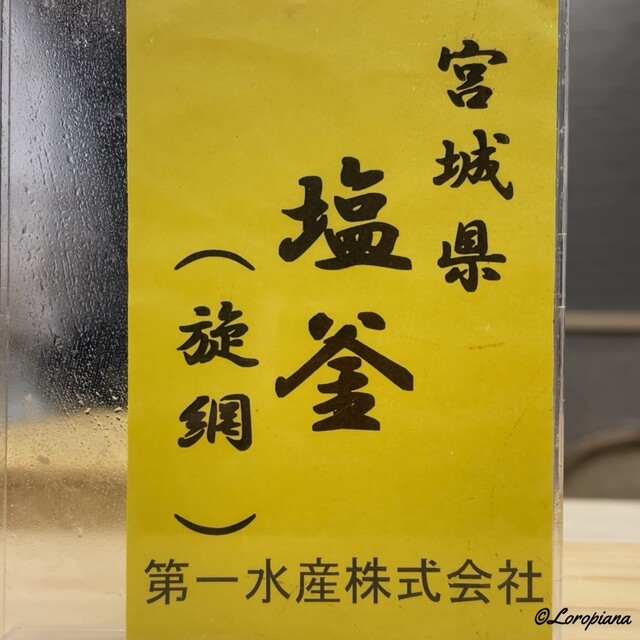 宮城県
塩釜
（旋網）
第一水産株式会社
©Loropiana